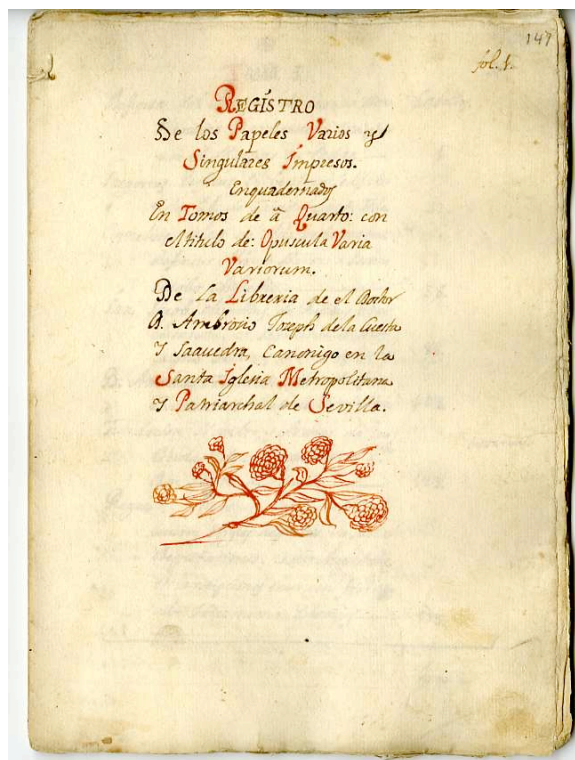 149
fol. 1.
REGÍSTRO
De los Papeles Varios y
Singulares Impresos.
Enquadernados
En Tomos de â Quarto: con
el titulo de: Opuscula Varia
Variorum.
De la Libreria de el Doctor
D. Ambrosio Joseph de la Cuesta
Y Saavedra, Canonigo en la
Santa Iglesia Metropolitana
Y Patriarchal de Sevilla.